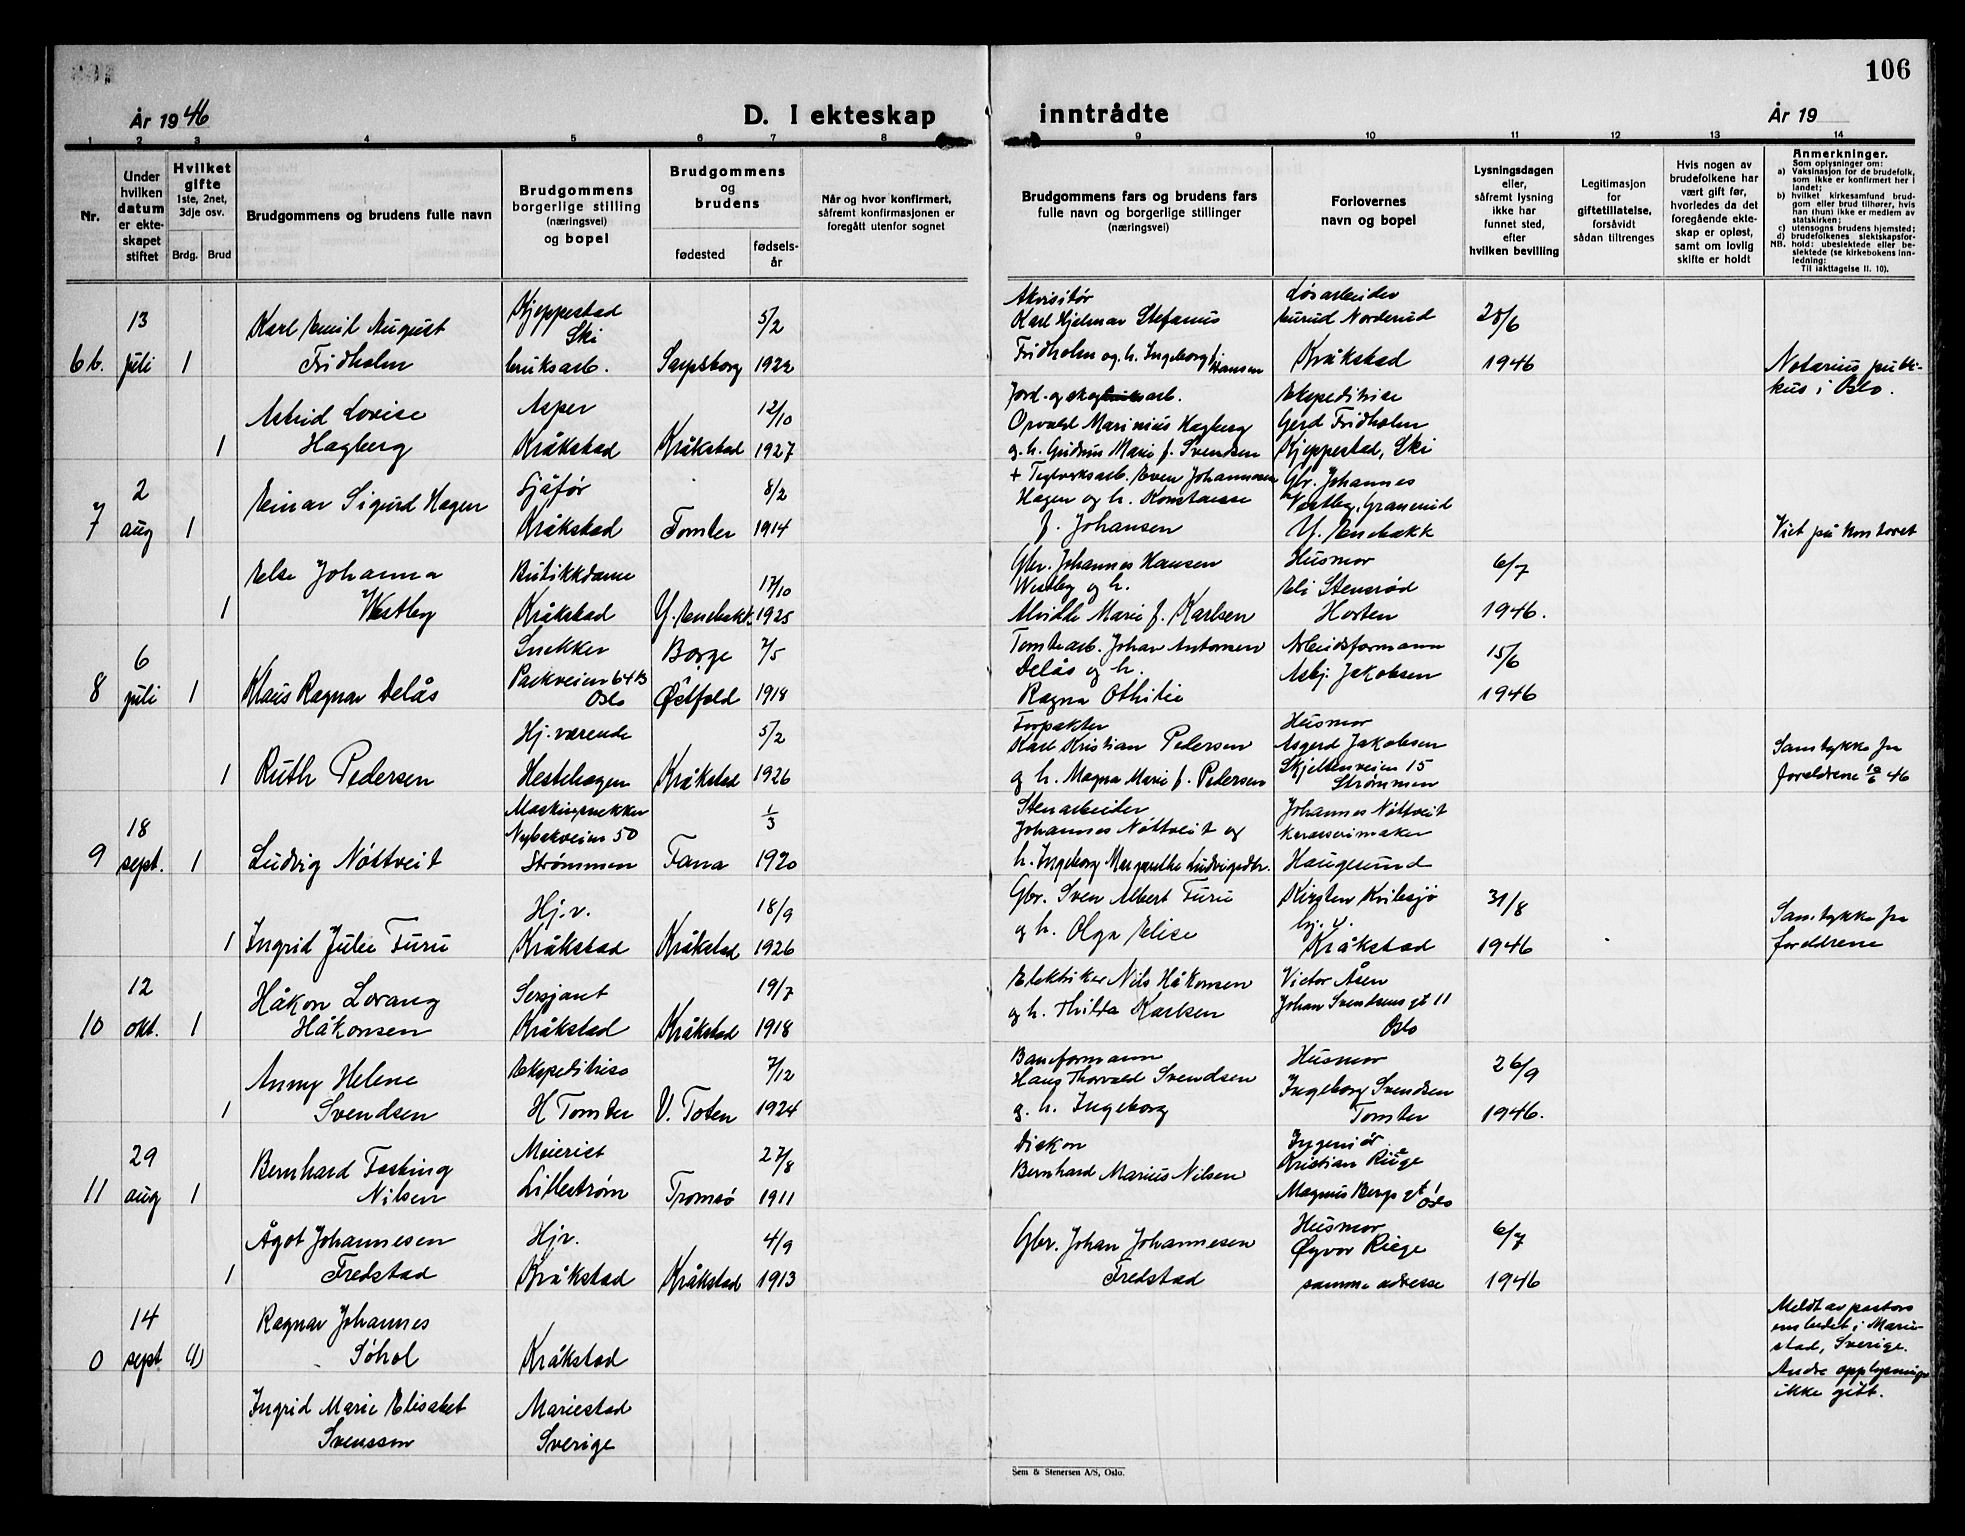 106
År 1946
D. I ekteskap inntrådte
År 19
1 2 3 4 5 6 7 8 9 10 11 12 13 14
Nr.
Under hvilken datum er ekte-skapet stiftet
Hvilket gifte 1ste, 2net, 3dje osv.
Brdg. Brud
Brudgommens og brudens fulle navn
Brudgommens borgerlige stilling (næringsvei) og bopel
Brudgommens og brudens
fødested
fødsels-år
Når og hvor konfirmert, såfremt konfirmasjonen er foregått utenfor sognet
Brudgommens fars og brudens fars fulle navn og borgerlige stillinger (næringsvei)
Forlovernes navn og bopel
Lysningsdagen eller, såfremt lysning ikke har funnet sted, efter hvilken bevilling
Legitimasjon for giftetillatelse, forsåvidt sådan tiltrenges
Hvis nogen av brudefolkene har vært gift før, hvorledes da det foregående ekte-skap er opløst, samt om lovlig skifte er holdt
Anmerkninger.
Som oplysninger om:
a) Vaksinasjon for de brudefolk, som ikke er konfirmert her i landet;
b) hvilket kirkesamfund brud-gom eller brud tilhører, hvis han (hun) ikke er medlem av statskirken;
c) utensogns brudens hjemsted;
d) brudefolkenes slektskapsfor-hold: ubeslektede eller be-slektede (se kirkebokens inn-ledning:
NB.
Til iakttagelse II. 10).
6b. 13 juli 1
Karl Emil August
Fridholm
Kjeppestad
Ski
bruksarb.
Sarpsborg
5/2
1922
Akvisitør
Karl Hjelmar Stefanus
Fridholm og h. Ingeborg f. Hansen
Løsarbeider
Eurud Norderud
Kråkstad
28/6
1946
Notarius publi-
kus i Oslo.
1
Astrid Lovise
Hagberg
Asper
Kråkstad
Kråkstad
12/10
1927
Jord- og skog arb.
Orvald Marinius Hagberg
og h. Gudrun Marie f. Svendsen
Ekspeditrise
Gerd Fridholm
Kjeppestad, Ski
7 2 aug 1
Einar Sigurd Hagen
Sjåfør
Kråkstad
Tomter
8/2
1914
+ Teglverksarb. Even Johannesen
Hagen og h. Konstanse
f. Johansen
Gbr. Johannes
Vestby, Granerud
Y. Enebakk
Viet på kontoret
1
Else Johanna
Westby
Butikkdame
Kråkstad
Y. Enebakk.
17/10
1925
Gbr. Johannes Hansen
Westby og h.
Alvilde Marie f. Karlsen
Husmor
Eli Stensrød
Horten
6/7
1946.
8 6 juli 1
Klaus Ragnar Delås
Snekker
Parkveien 64B
Oslo
Borge
Østfold
7/5
1918
Tomtearb. Johan Antonsen
Delås og h.
Ragna Othilie
Arbeidsformann
Asbj. Jakobsen
15/6
1946
1
Ruth Pedersen
Hj. værende
Hestehagen
Kråkstad
5/2
1926
Forpakter
Karl Kristian Pedersen
og h. Magna Marie f. Pedersen
Husmor
Asgerd Jakobsen
Skjettenveien 15
Strømmen
Samtykke fra
foreldrene 10/6 46
9 18 sept. 1
Ludvig Nöttveit
Maskinsnekker
Nybakveien 50
Strømmen
Fana
1/3
1920
Stenarbeider
Johannes Nöttveit og
h. Ingeborg Margrethe Ludvigsdtr.
Johannes Nöttveit
Karosserimaker
Haugesund
1
Ingrid Julie Furu
Hj.v.
Kråkstad
Kråkstad
18/9
1926
Gbr. Sven Albert Furu
og h. Olga Elise
Kirsten Kvilesjø
hj. v.
Kråkstad
31/8
1946
Samtykke fra
foreldrene
10 12 okt. 1
Håkon Lorang
Håkonsen
Sersjant
Kråkstad
Kråkstad
19/7
1918
Elektriker Nils Håkonsen
og h. Thilda Karlsen
Victor Åsen
Johan Svendsens gt 11
Oslo
1
Anny Helene
Svendsen
Ekspeditrise
H Tomter
V. Toten
7/12
1924
Baneformann
Hans Thorvald Svendsen
g. h. Ingeborg
Husmor
Ingeborg Svendsen
Tomter
26/9
1946.
11 29 aug 1
Bernhard Fasting
Nilsen
Meierist
Lillestrøm
Tromsø
27/8
1911
Diakon
Bernhard Marius Nilsen
Ingeniør
Kristian Riege
Magnus Bergs gt 1
Oslo
1
Ågot Johannesen
Fredstad
Hjv.
Kråkstad
Kråkstad
4/9
1913
Gbr. Johan Johannesen
Fredstad
Husmor
Øyvor Riege
samme adresse
6/7
1946
0 14 sept (1)
Ragnar Johannes
Søhol
Kråkstad
Meldt av pastors
embedet i Marie-
stad, Sverige.
Andre opplysninger
ikke gitt.
Ingrid Marie Elisabet
Svensson
Mariestad
Sverige
Sem & Stenersen A/S, Oslo.